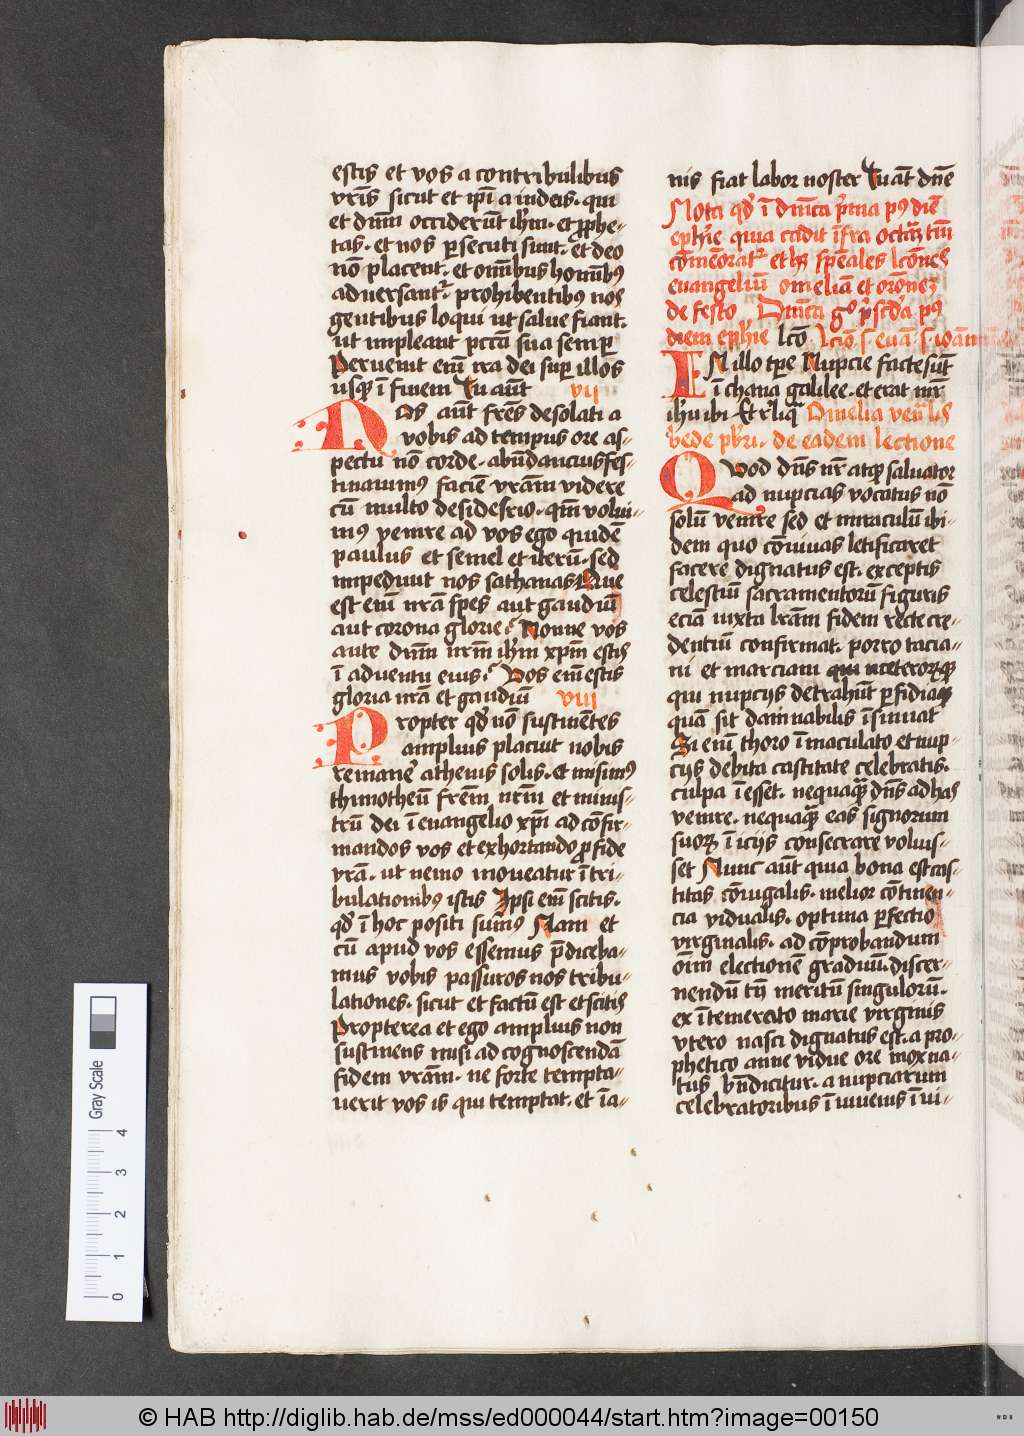 estis et vos a contribulibus
vr̄is sicut et ip̄i a iudeis· qui
et dn̄m occiderūt ih̄m· et ꝓphe-
tas· et nos ꝑsecuti sunt· et deo
nō placent· et om̄ibus hominibꝰ
adversantᷣ· prohibentibꝰ nos
gentibus loqui ut salve fiant·
ut impleant pctā sua semꝑ
Pervenit em̄ ira dei suꝑ illos
usqꝫ ī finem Tu aūt vii
Nos aūt fr̄es desolati a
vobis ad tempus ore as-
pectu nō corde· abūdancius fes-
tinavimꝰ faciē vr̄am videre
cū multo desiderio· qm̄ volui-
mꝰ venire ad vos ego quidē
paulus et semel et iterū· sed
impediuit nos sathanas Que
est em̄ nr̄a spes aut gaudiū
aut corona glorie Nonne vos
ante dn̄m nr̄m ih̄m xp̄m estis
ī adventu eius Vos em̄ estis
gloria nr̄a et gaudiū viii
Propter qd̓ nō sustinētes
amplius placuit nobis
remanē athenis solis· et misimꝰ
thimotheū fr̄em nr̄m et minis-
trū dei ī evangelio xp̄i ad cōfir-
mandos vos et exhortando ꝓ fide
vr̄a· ut nemo moveatur ī tri-
bulationibꝰ istis Ipsi em̄ scitis·
qd̓ ī hoc positi sumꝰ Nam et
cū apud vos essemus p̄diceba-
mus vobis passuros nos tribu-
lationes· sicut et factū est et scitis
Propterea et ego amplius non
sustinens misi ad cognoscendā
fidem vr̄am· ne forte tempta-
verit vos is qui temptat· et īa-
nis fiat labor noster Tu aūt dn̄e
Nota qd̓ ī dn̄ica p̄ma pꝰ diē
eph̄ie quia ccidit īfra octaū tm̄
cōmēoratᷣ et hꝫ sp̄eales lcōnes
evangeliū omeliā et orōnes
de festo Dn̄ica gͦ p̄ scd̓a pꝰ
diem eph̄ie lcō Lcio s· evā· s· ioāni
IN illo tꝑe Nupcie facte sūt
ī chana galilee· et erat mr̄
ih̄u ibi Et rl̓iqꝫ Omelia ven̄lis
bede pb̄ri· de eadem lectione
Quod dn̄s nr̄ atqꝫ salvator
ad nupcias vocatus nō
solū venire sed et miraculū ibi-
dem quo cōvivas letificaret
facere dignatus est· exceptis
celestiū sacramentorū figuris
eciā iuxta lr̄am fidem recte cre-
dentiū confirmat· porro tacia-
ni et marciani
qui nupcijs detrahūt ꝑfidia
quā sit damnabilis īsinuat
Si em̄ thoro īmaculato et nup-
cijs debita castitate celebratis·
culpa īesset· nequaqꝫ dn̄s ad has
venire· nequaqꝫ eas signorum
suoꝝ īicijs consecrare volvis-
set Nunc aūt quia bona est cas-
titas cōiugalis· melior cōtinen-
cia vidualis· optima ꝑfectio
virginalis· ad cōprobandum
oīm electionē graduū· discer-
nendū tn̄ meritū singulorū·
ex ītemerato marie virginis
utero nasci dignatus est· a pro-
phetico anne vidue ore mox na-
tus bn̄dicitur· a nupciarum
celebratoribus ī iuvenis ī vi-
Gray Scale
4
3
2
1
0
© HAB http://diglib.hab.de/mss/ed000044/start.htm?image=00150